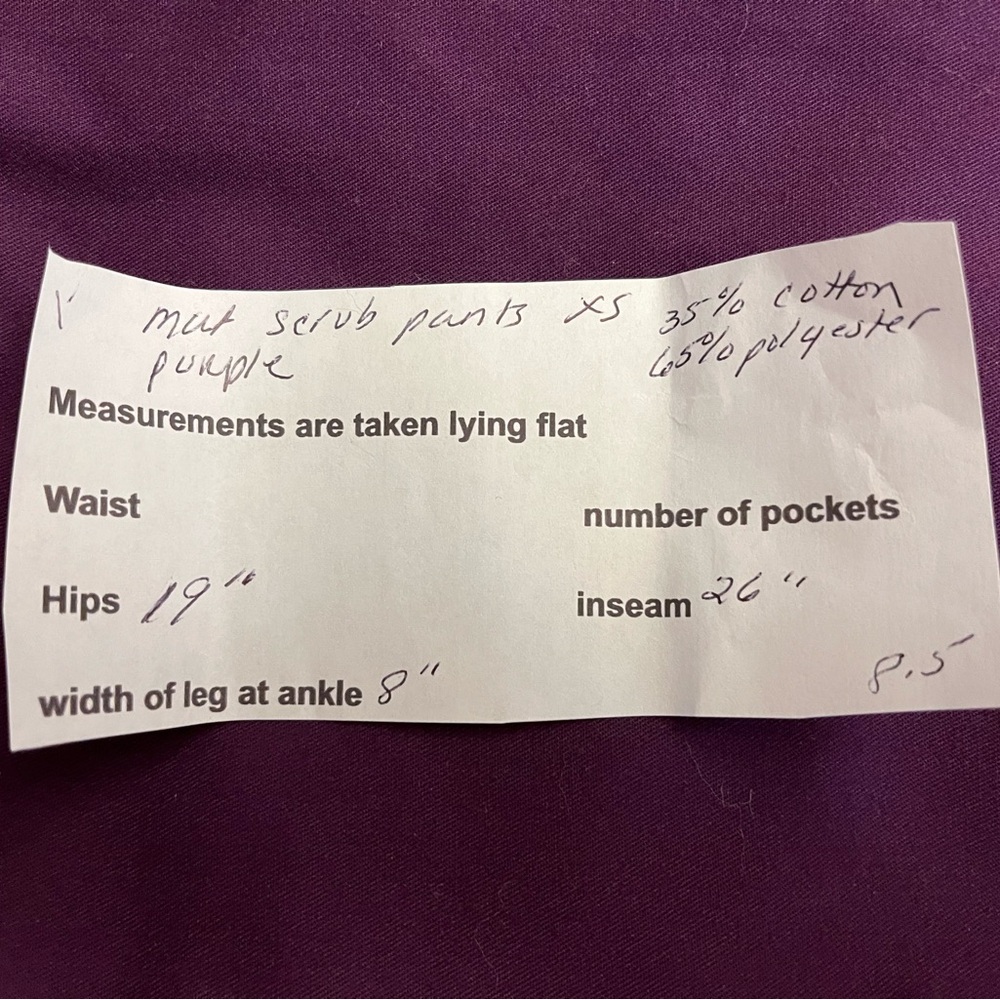 mat scrub pants xs 35% cotton
purple 65% polyester
Measurements are taken lying flat
Waist number of pockets
Hips 19" inseam 26"
width of leg at ankle 8" 8.5